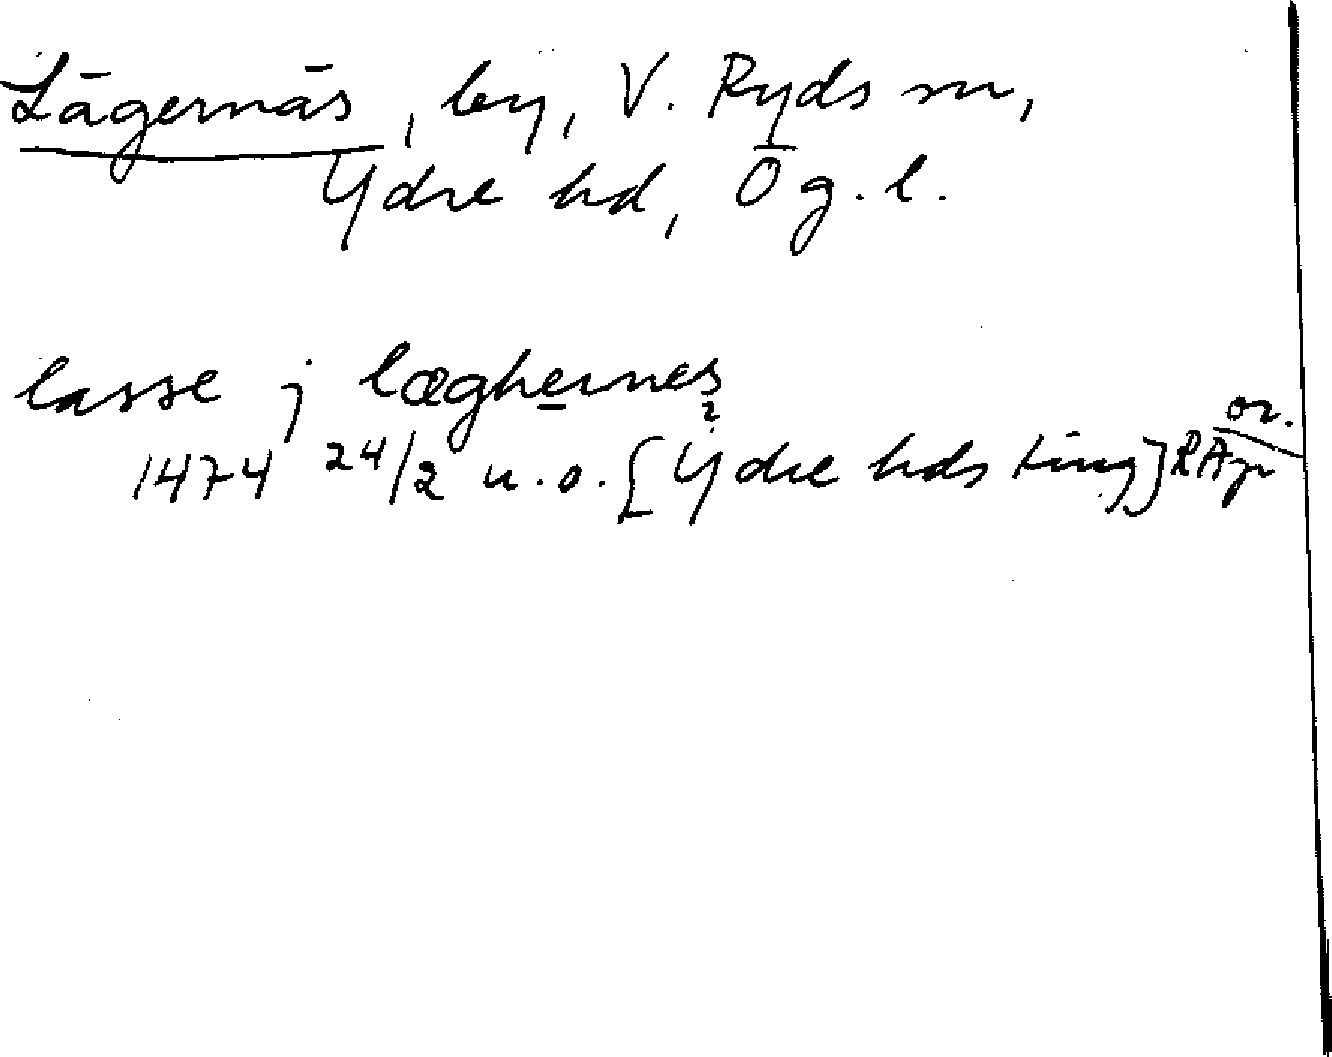 Lägernäs, by, V. Ryds sn,
Ydre hd, Ög. l.
lasse j læghernes
?
or.
1474 24/2 u.o. [Ydre hds ting] RAp